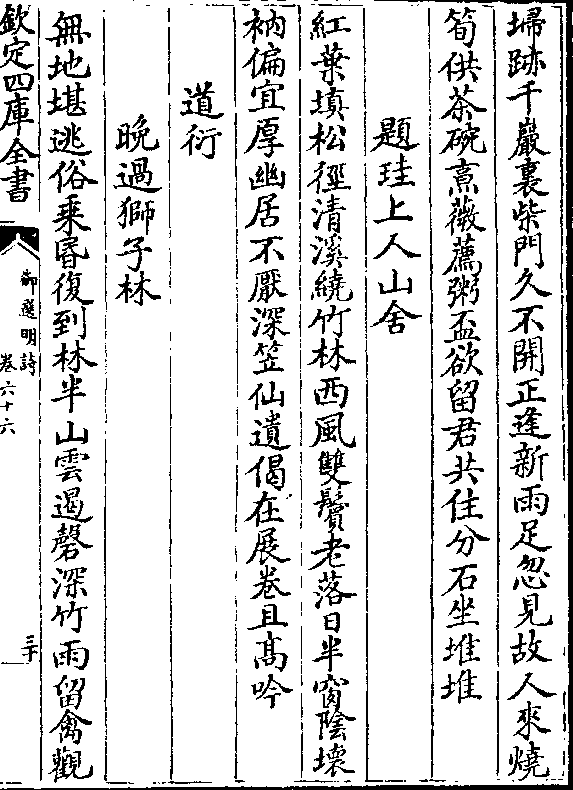 埽跡千巖裏柴門久不開正逢新雨足忽見故人來燒
筍供茶碗烹薇薦粥盃欲留君共住分石坐堆堆
題珪上人山舍
紅葉填松徑清溪繞竹林西風雙鬢老落日半窗陰壞
衲偏宜厚幽居不厭深笠仙遺偈在展卷且髙吟
道衍
晩過獅子林
無地堪逃俗乗昏復到林半山雲遏磬深竹雨留禽觀
欽定四庫全書
御選明詩
卷六十六
三十